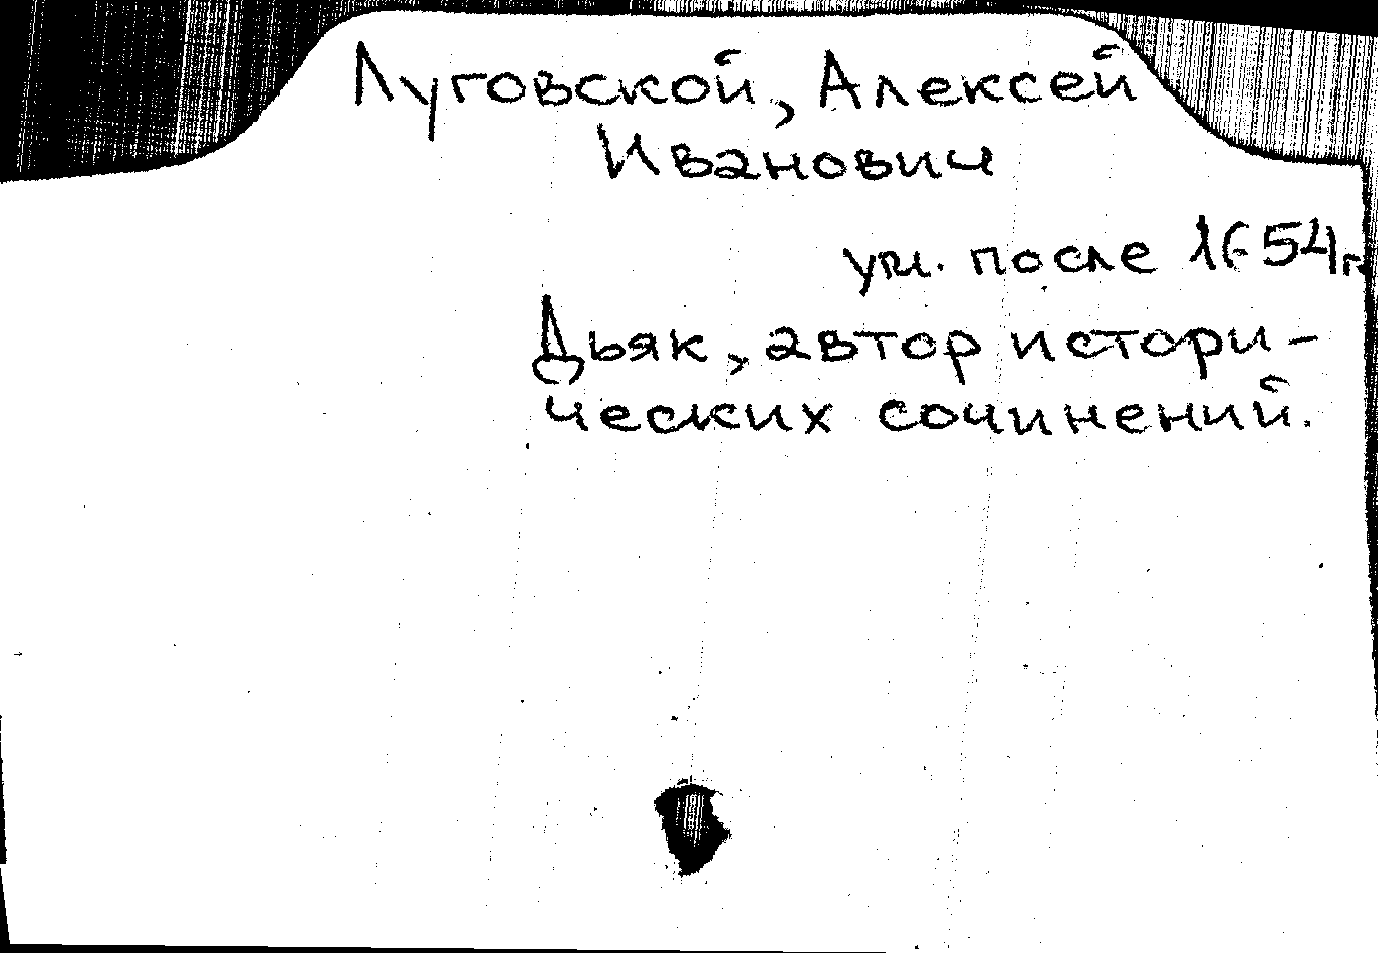 Луговской, Алексей
Иванович
ум. после 1654 г.
Дьяк, автор истори-
ческих сочинений.